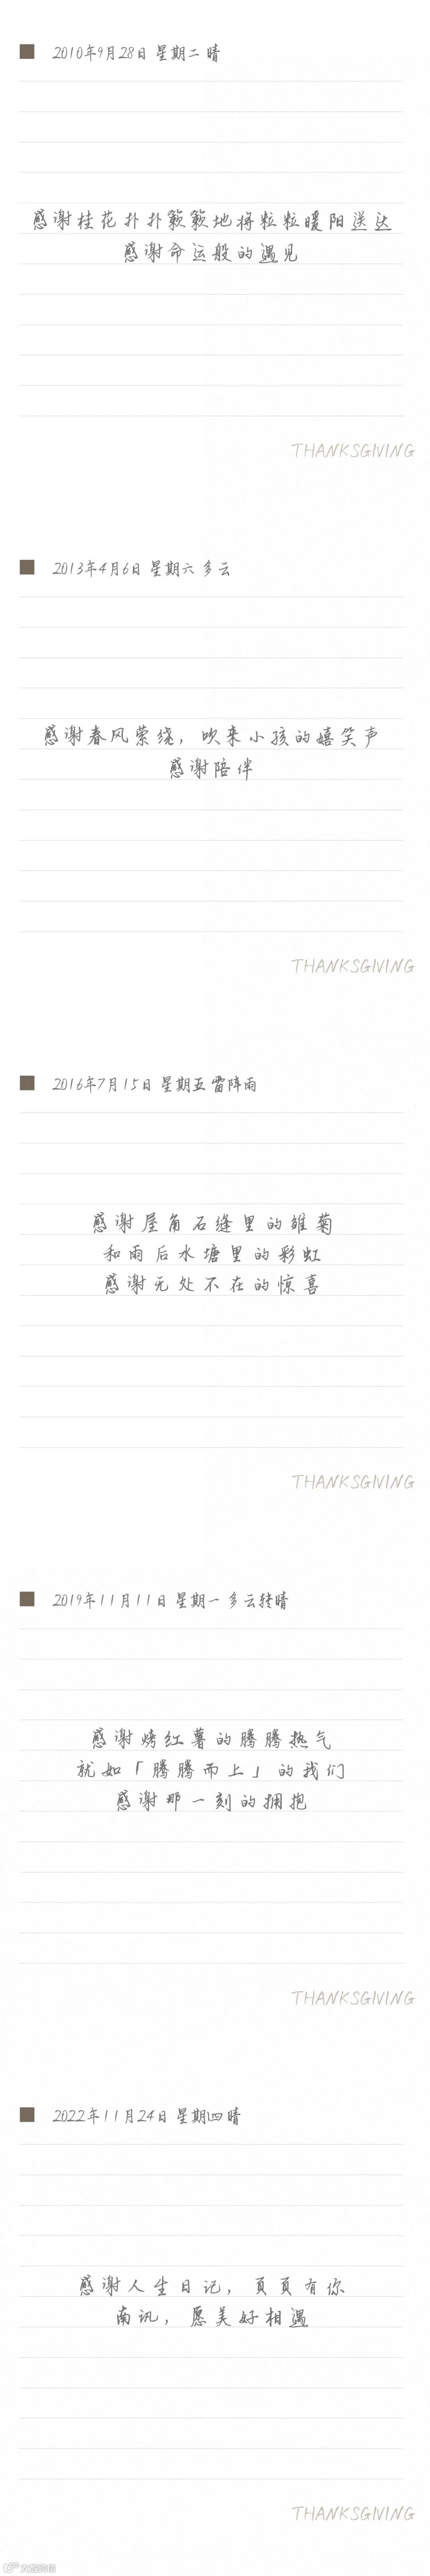 2010年9月28日 星期二 晴
感谢桂花扑扑簌簌地将粒粒暖阳送达
感谢命运般的遇见
THANKSGIVING
2013年4月6日 星期六 多云
感谢春风萦绕，吹来小孩的嬉笑声
感谢陪伴
THANKSGIVING
2016年7月15日 星期五 雷阵雨
感谢屋角石缝里的雏菊
和雨后水塘里的彩虹
感谢无处不在的惊喜
THANKSGIVING
2019年11月11日 星期一 多云转晴
感谢烤红薯的腾腾热气
就如「腾腾而上」的我们
感谢那一刻的拥抱
THANKSGIVING
2022年11月24日 星期四 晴
感谢人生日记，页页有你
南讯，愿美好相遇
THANKSGIVING